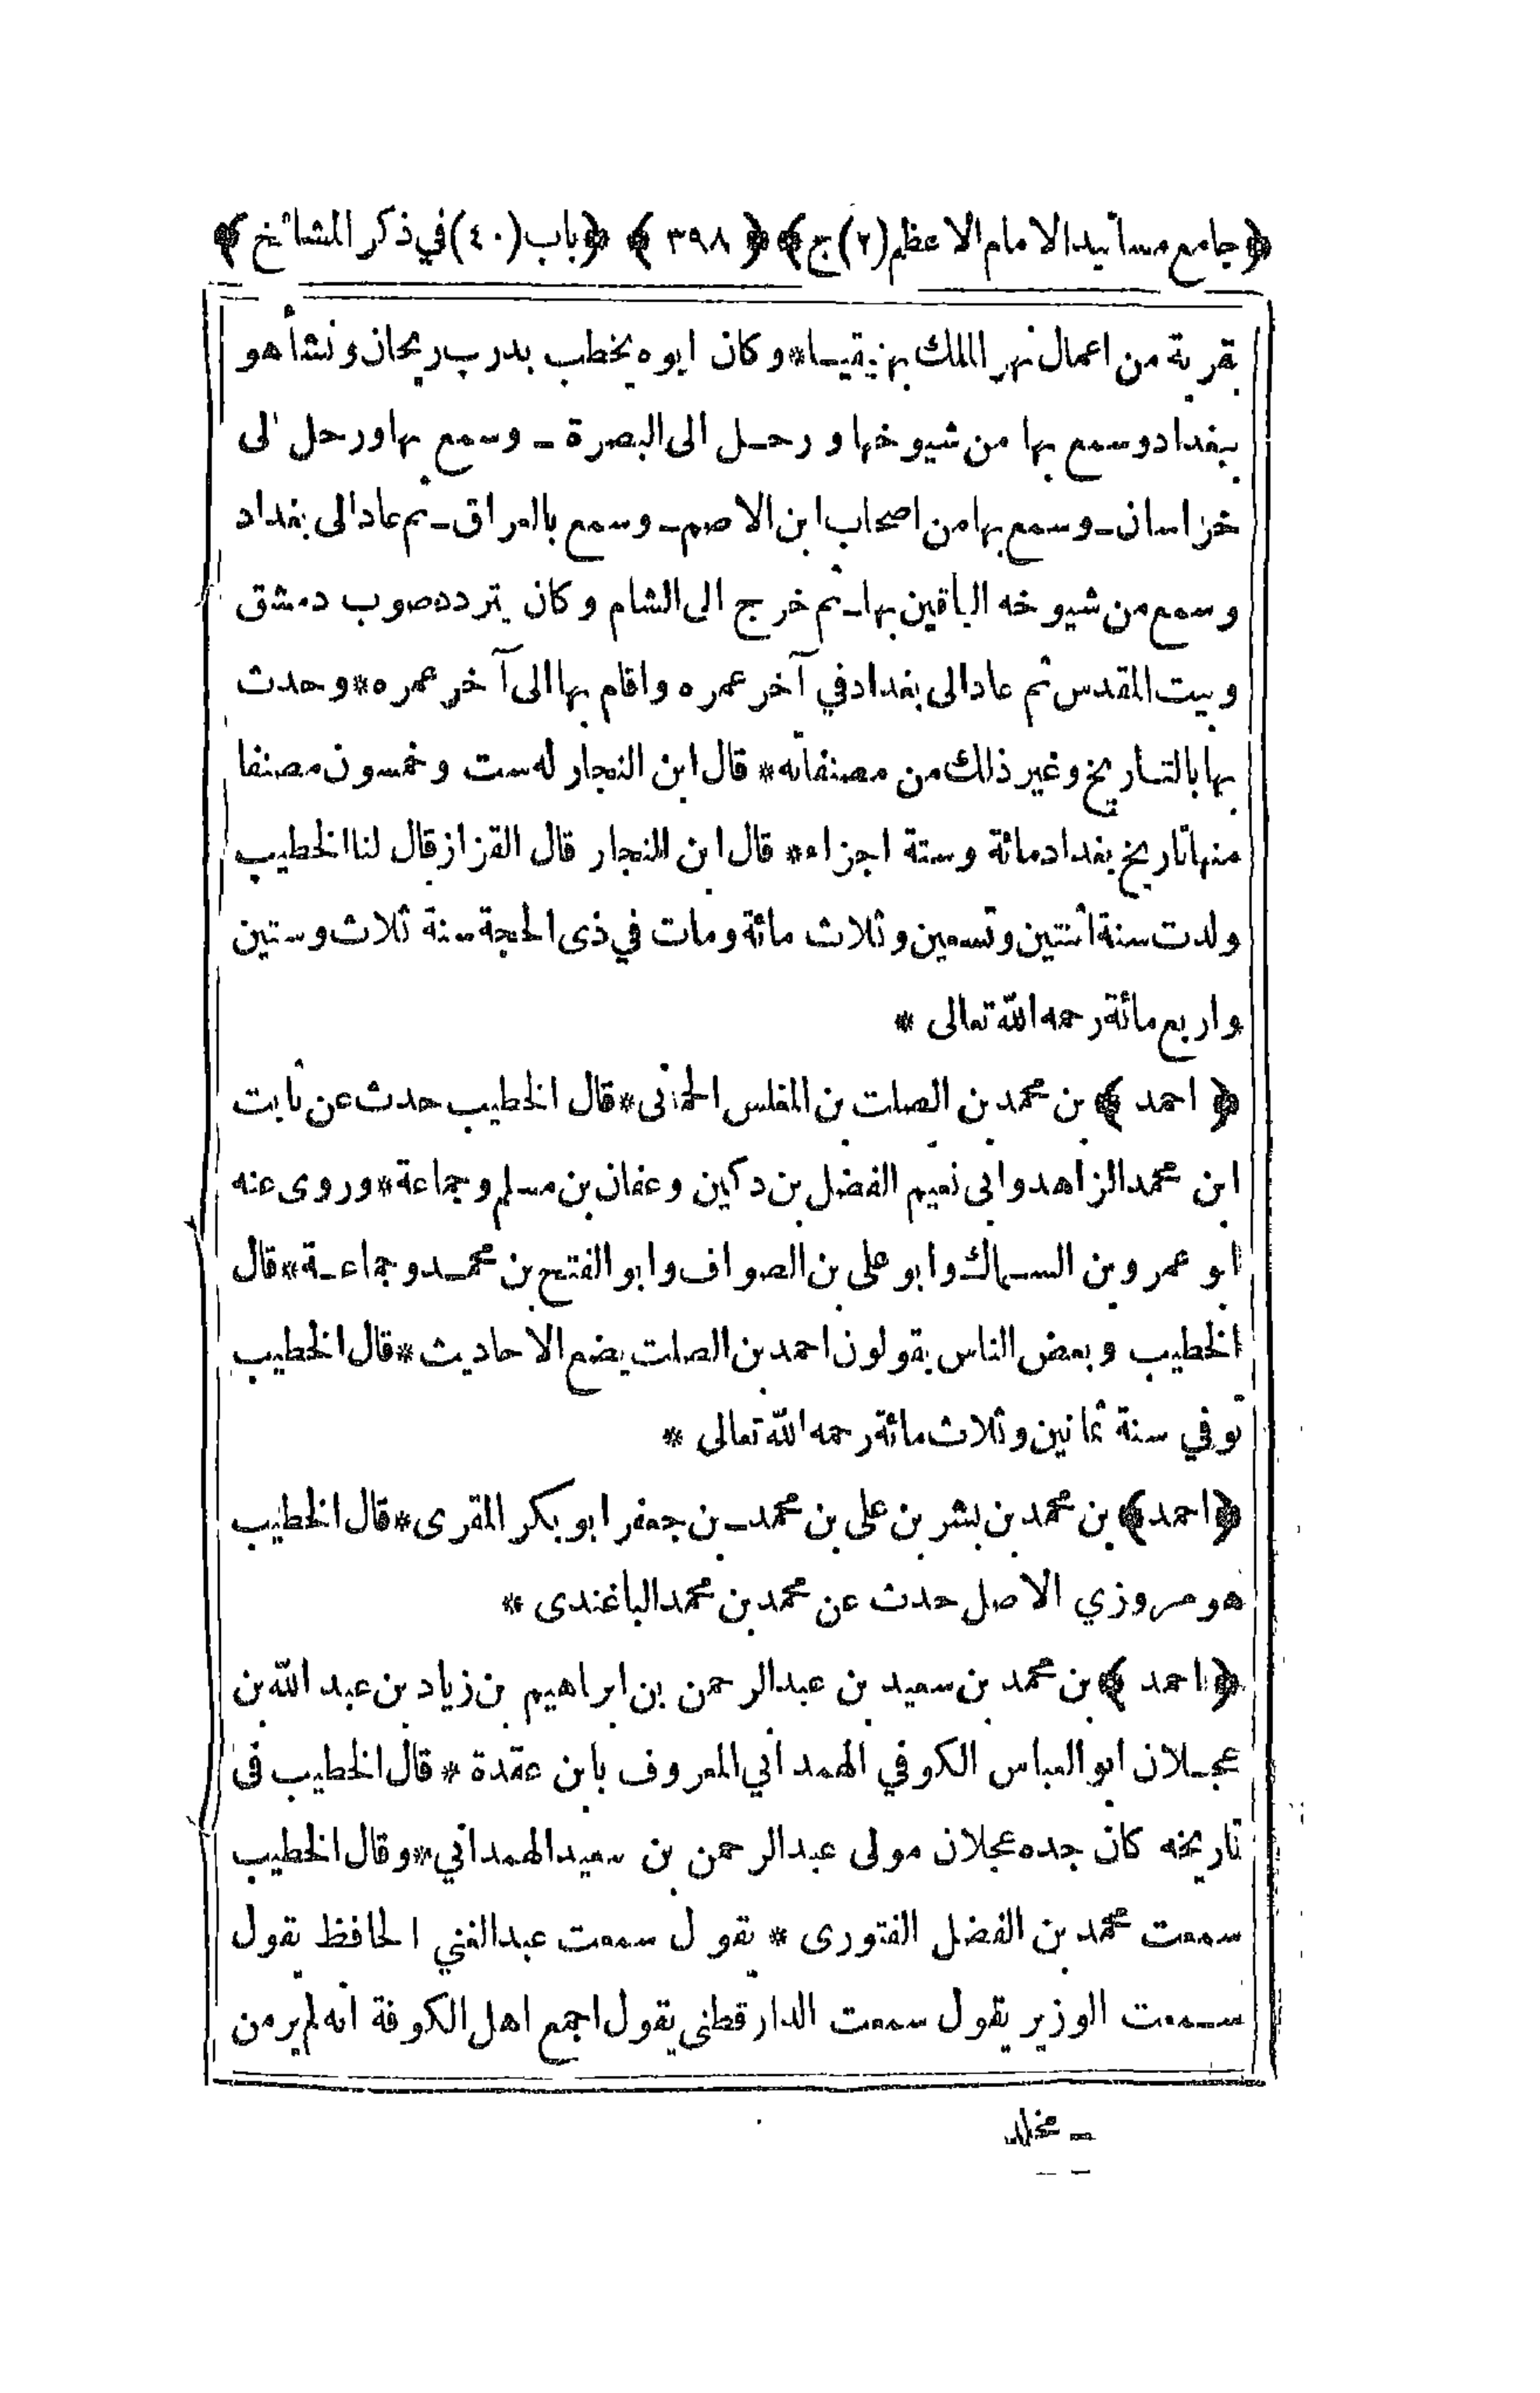 ﴿جامع مسانيد الامام الاعظم (٢) ج﴾ ﴿ ٣٩٨ ﴾ ﴿باب (٤٠) في ذكر المشائخ ﴾
بقرية من اعمال نهر الملك * وكان ابوه يخطب بدرب ريحان ونشأ هو
ببغداد وسمع بها من شيوخها و رحل الى البصرة ـ وسمع بها ورحل الى
خراسان ـ وسمع بها من اصحاب ابن الاصم ـ وسمع بالعراق ـ ثم عاد الى بغداد
وسمع من شيوخه الباقين بها ـ ثم خرج الى الشام وكان يتردد صوب دمشق
وبيت المقدس ثم عاد الى بغداد في آخر عمره واقام بها الى آخر عمره * وحدث
بها بالتاريخ وغير ذلك من مصنفاته * قال ابن النجار له ست وخمسون مصنفا
منها تاريخ بغداد مائة وستة اجزاء * قال ابن النجار قال القزاز قال لنا الخطيب
ولدت سنة اثنتين وتسعين وثلاث مائة ومات في ذى الحجة سنة ثلاث وستين
واربع مائة رحمه الله تعالى *
﴿ احمد ﴾ بن محمد بن الصلت بن المغلس الحمانى * قال الخطيب حدث عن ثابت
ابن محمد الزاهد وابى نعيم الفضل بن دكين وعفان بن مسلم وجماعة * وروى عنه
ابو عمرو بن السماك وابو على بن الصواف وابو الفتح بن محمد وجماعة * قال
الخطيب وبعض الناس يقولون احمد بن الصلت يضع الاحاديث * قال الخطيب
توفي سنة ثمانين وثلاث مائة رحمه الله تعالى *
﴿احمد﴾ بن محمد بن بشر بن على بن محمد ـ بن جعفر ابو بكر المقرى * قال الخطيب
هو مروزي الاصل حدث عن محمد بن محمد الباغندى *
﴿احمد ﴾ بن محمد بن سعيد بن عبد الرحمن بن ابراهيم بن زياد بن عبد الله بن
عجلان ابو العباس الكوفي الهمداني المعروف بابن عقدة * قال الخطيب فى
تاريخه كان جده عجلان مولى عبد الرحمن بن سعيد الهمداني * وقال الخطيب
سمعت محمد بن الفضل الفتورى * يقول سمعت عبد الغني الحافظ يقول
سمعت الوزير يقول سمعت الدار قطنى يقول اجمع اهل الكوفة انه لم ير من